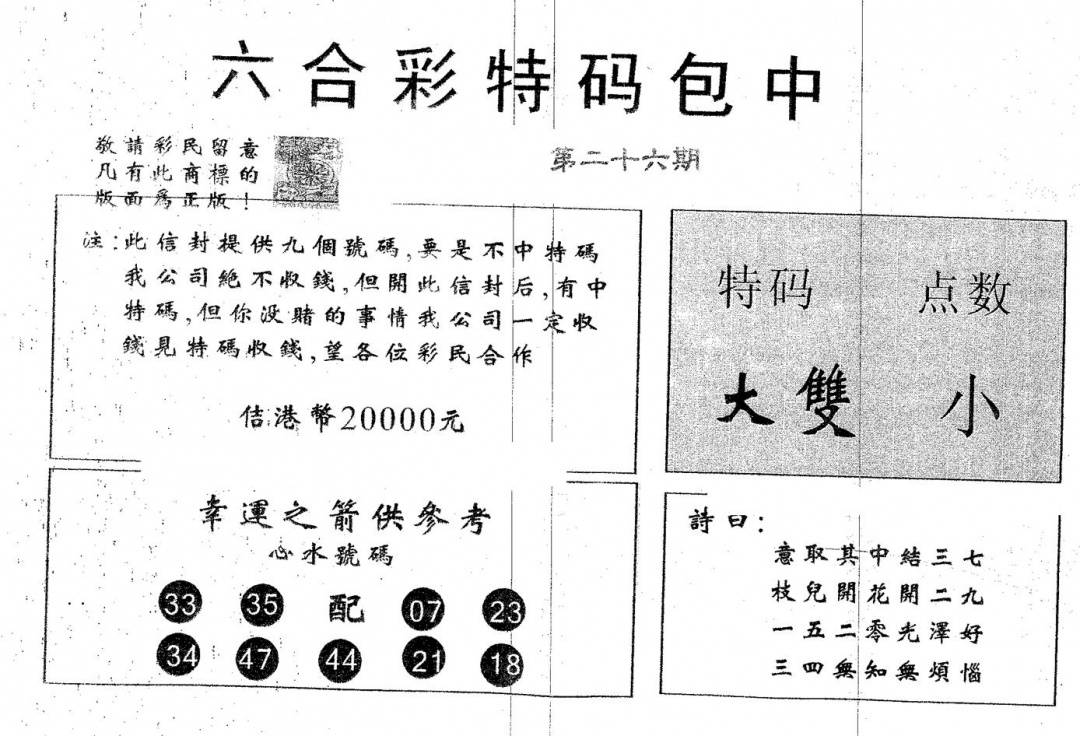 六合彩特码包中
敬請彩民留意
凡有此商標的
版面爲正版！
第二十六期
注：此信封提供九個號碼,要是不中特碼
我公司絶不收錢,但開此信封后,有中
特碼,但你没賭的事情我公司一定收
錢見特碼收錢,望各位彩民合作
佶港幣20000元
特码 点数
大雙 小
幸運之箭供參考
心水號碼
33 35 配 07 23
34 47 44 21 18
詩曰：
意取其中結三七
枝兒開花開二九
一五二零光澤好
三四無知無煩惱